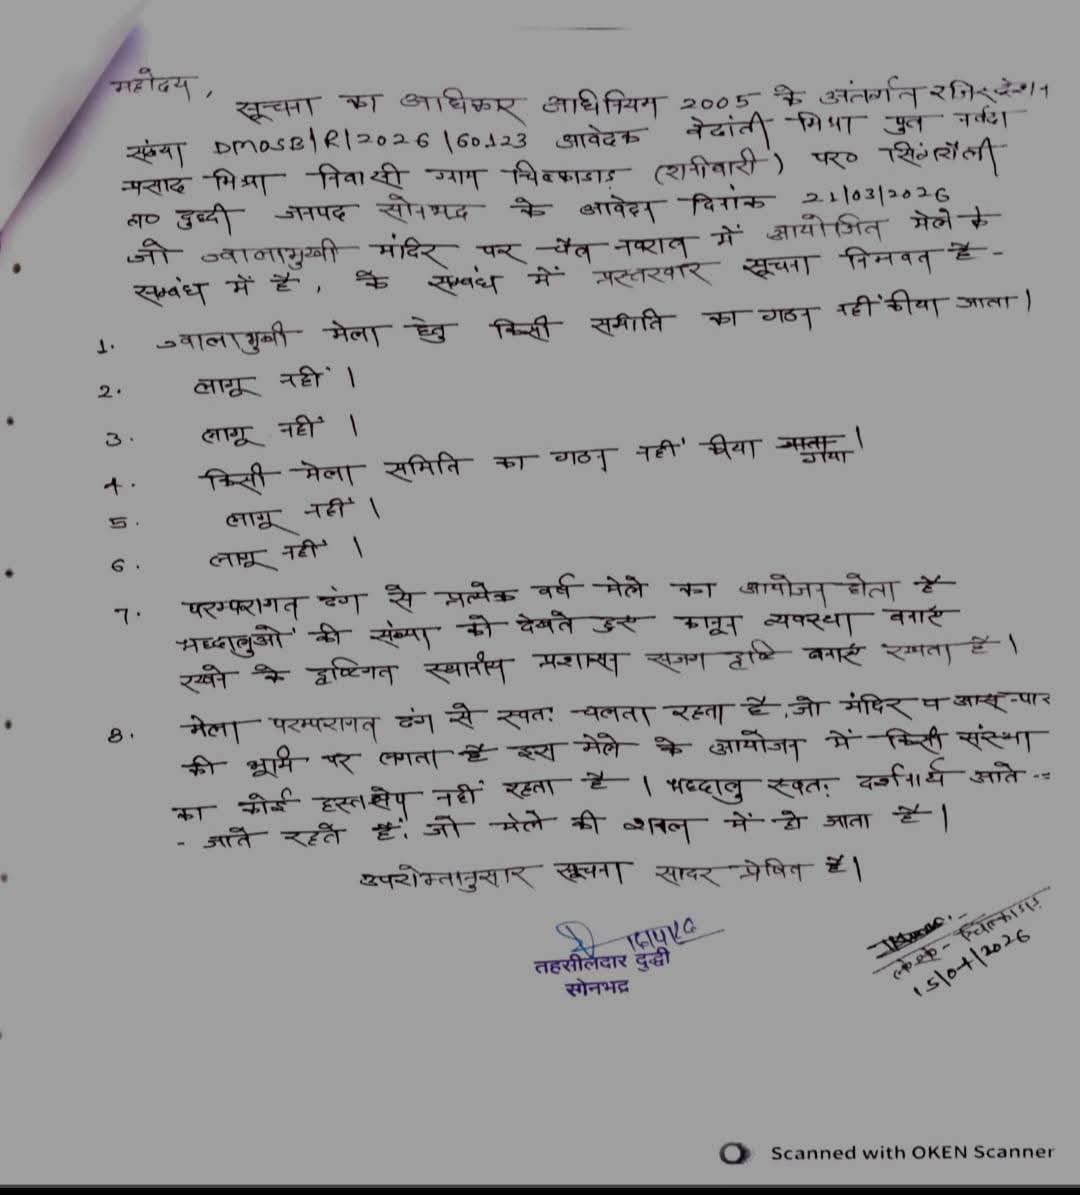 महोदय,
सूचना का अधिकार अधिनियम 2005 के अंतर्गत रजिस्ट्रेशन
संख्या DMOSB/R/2026/60123 आवेदक वेदांती मिश्रा पुत्र नर्वदा
प्रसाद मिश्रा निवासी ग्राम चिल्काडाड़ (शनीचारी) पर० सिंगरौली
त० दुध्दी जनपद सोनभद्र के आवेदन दिनांक 21/03/2026
जो ज्वालामुखी मंदिर पर चैत्र नवरात्र में आयोजित मेले के
सम्बंध में है, के सम्बंध में प्रस्तरवार सूचना निम्नवत है -
1. ज्वालामुखी मेला हेतु किसी समीति का गठन नहीं कीया जाता।
2. लागू नहीं।
3. लागू नहीं।
4. किसी मेला समिति का गठन नहीं कीया जाता।
गया
5. लागू नहीं।
6. लागू नहीं।
7. परम्परागत ढंग से प्रत्येक वर्ष मेले का आयोजन होता है
श्रध्दालुओं की संख्या को देखते हुए कानून व्यवस्था बनाए
रखने के दृष्टिगत स्थानीय प्रशासन सजग दृष्टि बनाए रखता है।
8. मेला परम्परागत ढंग से स्वतः चलता रहता है, जो मंदिर व आस-पास
की भूमि पर लगता है इस मेले के आयोजन में किसी संस्था
का कोई हस्तक्षेप नहीं रहता है। श्रध्दालु स्वतः दर्शनार्थ आते -
- जाते रहते हैं, जो मेले की शक्ल में हो जाता है।
उपरोक्तानुसार सूचना सादर प्रेषित है।
16/4/26
तहसीलदार दुद्धी
सोनभद्र
चिल्काडाड़
15/04/2026
Scanned with OKEN Scanner